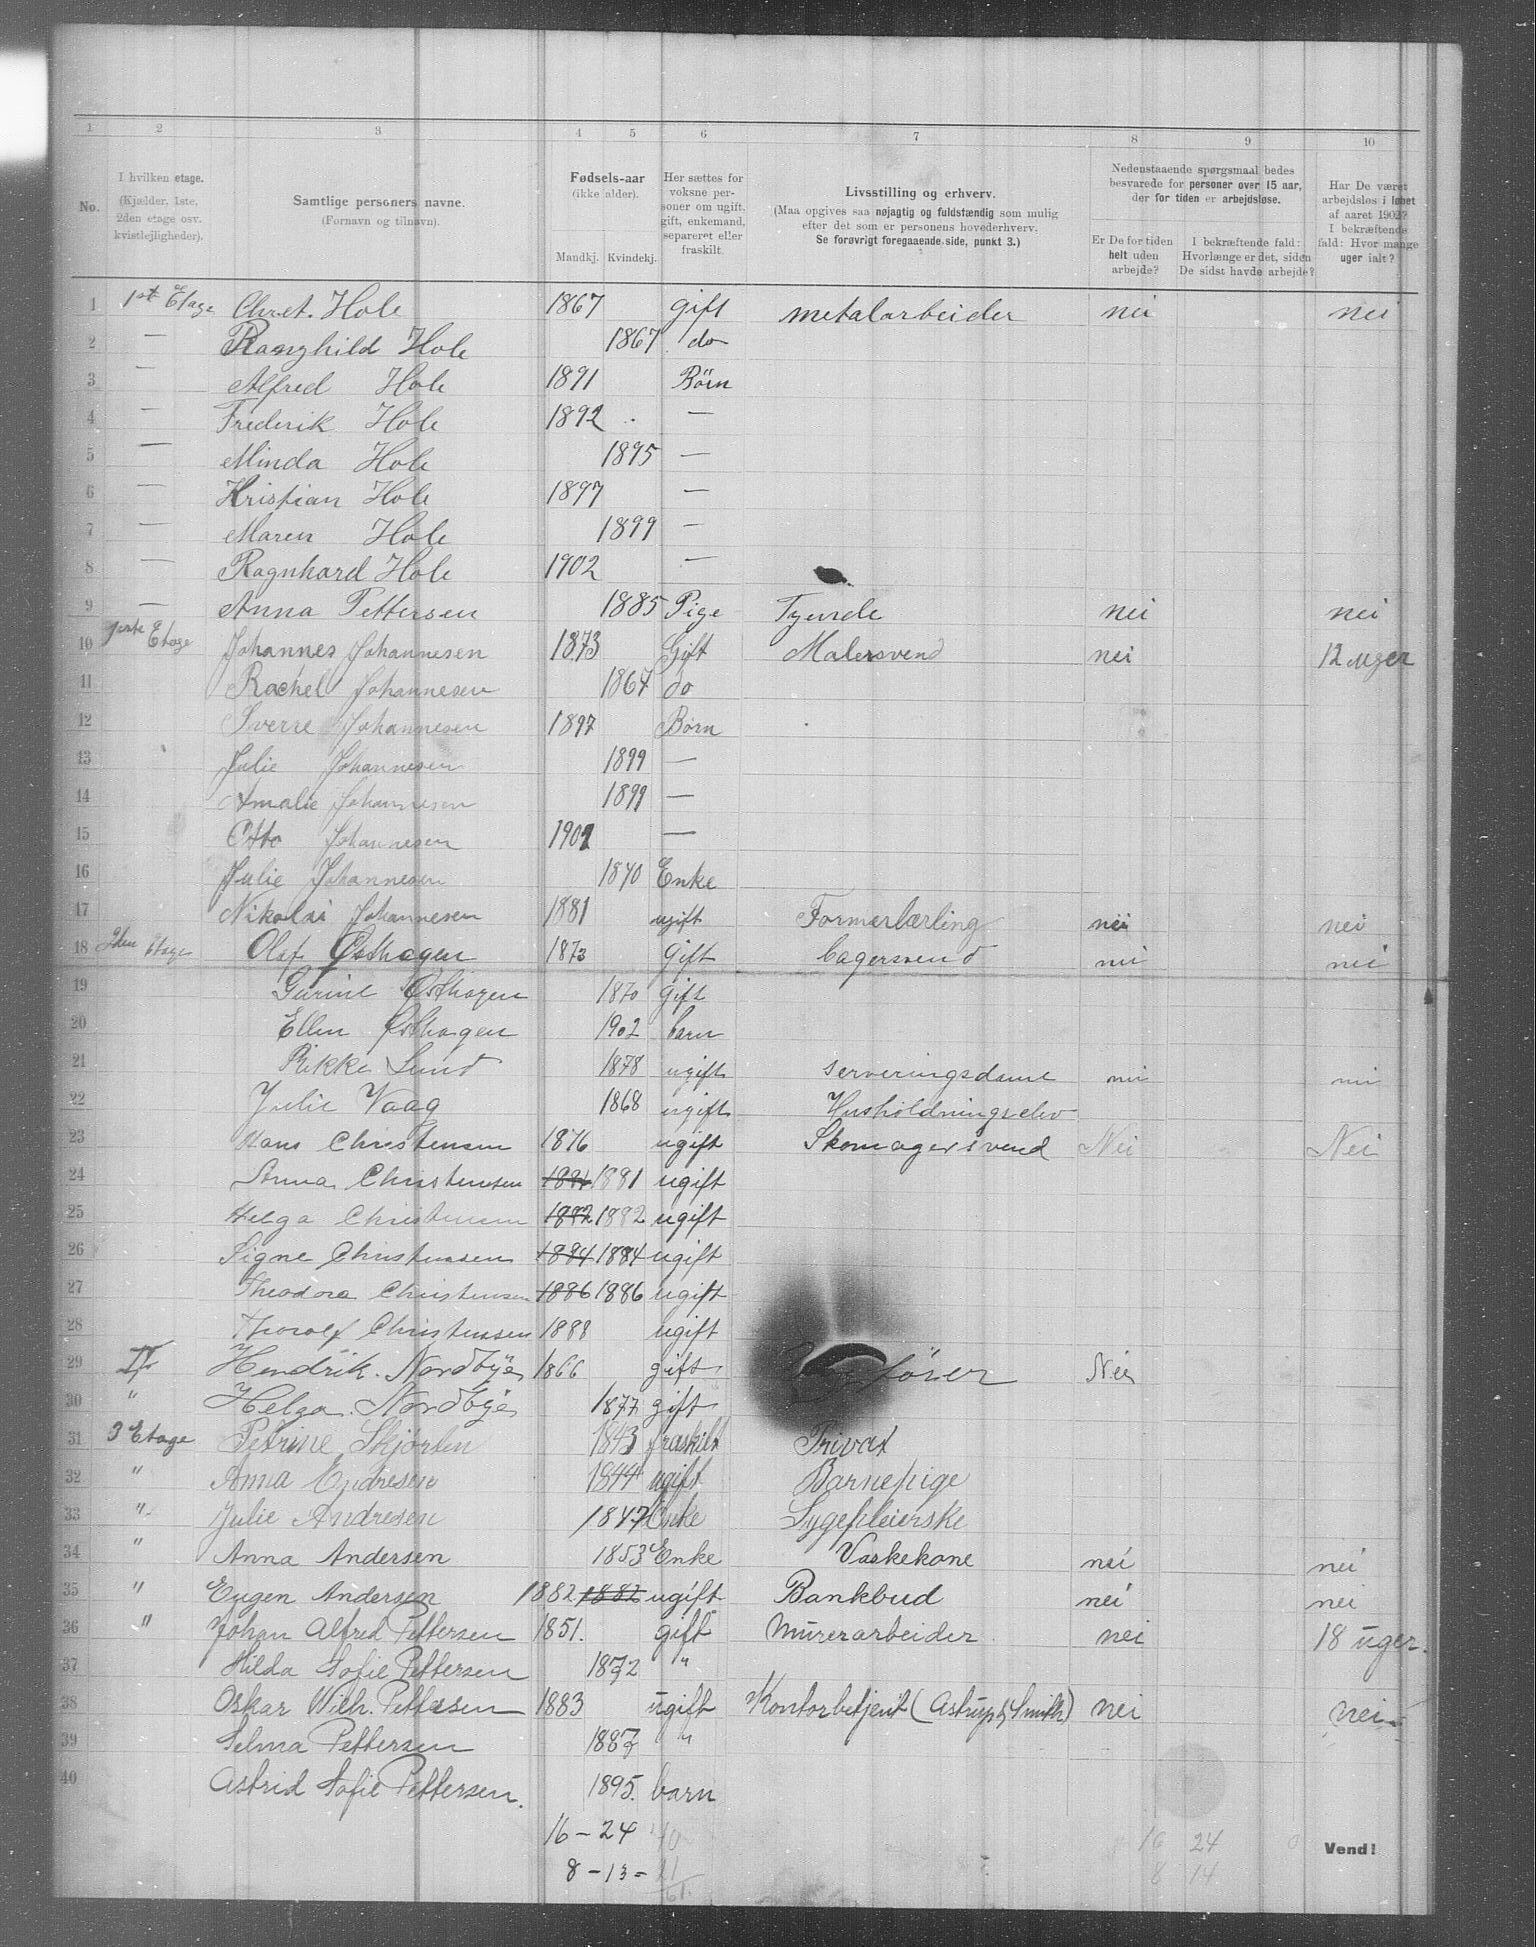 1 2 3 4 5 6 7 8 9 10
No. I hvilken etage. (Kjælder, 1ste, 2den etage osv. kvistlejligheder). Samtlige personers navne. (Fornavn og tilnavn). Fødsels-aar (ikke alder). Mandkj. Kvindekj. Her sættes for voksne personer om ugift, gift, enkemand, separeret eller fraskilt. Livsstilling og erhverv. (Maa opgives saa nøjagtig og fuldstændig som mulig efter det som er personens hovederhverv. Se forøvrigt foregaaende side, punkt 3.) Nedenstaaende spørgsmaal bedes besvarede for personer over 15 aar, der for tiden er arbejdsløse. Er De for tiden helt uden arbejde? I bekræftende fald: Hvorlænge er det, siden De sidst havde arbejde? Har De været arbejdsløs i løbet af aaret 1902? I bekræftende fald: Hvor mange uger ialt?
1 1st Etage Chret. Hole 1867 gift metalarbeider nei nei
2 — Ranghild Hole 1867 do
3 — Alfred Hole 1891 Börn
4 — Frederik Hole 1892 —
5 — Minda Hole 1895 —
6 — Kristian Hole 1897 —
7 — Maren Hole 1899 —
8 — Ragnhard Hole 1902 —
9 — Anna Pettersen 1885 Pige Tyende nei nei
10 1ste Etage Johannes Johannesen 1873 Gift Malersvend nei 12 uger
11 Rachel Johannesen 1867 do
12 Sverre Johannesen 1897 Børn
13 Julie Johannesen 1899 —
14 Amalie Johannesen 1899 —
15 Otto Johannesen 1902 —
16 Julie Johannesen 1840 Enke
17 Nikolai Johannesen 1881 ugift Formerlærling nei nei
18 2den Etage Olaf Østhagen 1873 Gift bagersvend nei nei
19 Gurine Østhagen 1870 gift
20 Ellen Østhagen 1902 barn
21 Rikke Lund 1878 ugift serveringsdame nei nei
22 Julie Vaag 1868 ugift Husholdningselev
23 Hans Christensen 1876 ugift Skomagersvend Nei Nei
24 Anna Christensen 1881 1881 ugift
25 Helga Christensen 1882 1882 ugift
26 Signe Christensen 1884 1884 ugift
27 Theodora Christensen 1886 1886 ugift
28 Thorolf Christensen 1888 ugift
29 II Hendrik. Nordbye 1866 gift Nei
30 " Helga. Nordbye 1877 gift
31 3 Etage Petrine Skjorten 1843 fraskilt Privat
32 " Anna Endresen 1844 ugift Barnepige
33 " Julie Andresen 1847 Enke Sygepleierske
34 " Anna Andersen 1853 Enke Vaskekone nei nei
35 " Eugen Andersen 1882 1882 ugift Bankbud nei nei
36 " Johan Alfred Pettersen 1851. gift Murerarbeider nei 18 uger.
37 Hilda Sofie Pettersen 1872 "
38 Oskar Wilh. Pettersen 1883 ugift Kontorbetjent (Astrup & Smith) nei nei
39 Selma Pettersen 1887 "
40 Astrid Sofie Pettersen. 1895. barn
16 - 24 40 16 24 0 Vend!
8 - 13 = 21 8 14
61.